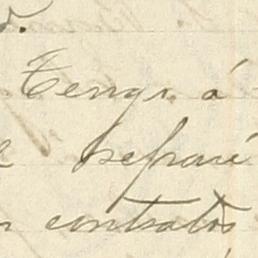 d.
Tengo á
separé
n contratos